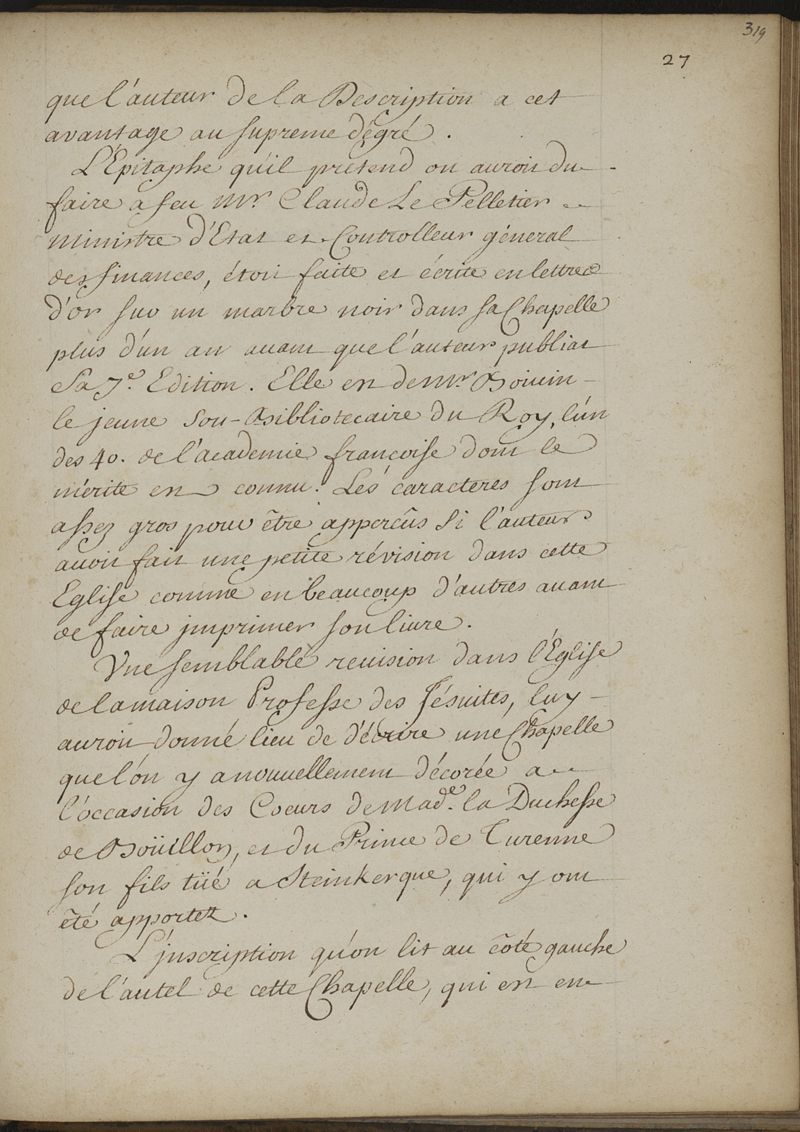 319
27
que l'auteur de la Description a cet
avantage au supreme dégré.
L'Epitaphe qu'il prétend on auroit du
faire a feu Mr. Claude Le Pelletier
ministre d'Etat et Controlleur géneral
des finances, étoit faite et écrite en lettres
d'or sur un marbre noir dans sa Chapelle
plus d'un an avant que l'auteur publiat
Sa 7e. Edition. Elle est de Mr Boivin
le jeune Sou-Bibliotecaire du Roy, l'un
des 40. de l'academie françoise dont le
mérite est connu. Les caracteres sont
assez gros pour être apperçûs si l'auteur
avoit fait une petite révision dans cette
Eglise comme en beaucoup d'autres avant
de faire jmprimer son livre.
Une semblable revision dans l'Eglise
de la maison Professe des Jésuites, luy
auroit donné lieu de d'écrire une Chapelle
que l'on y a nouvellement décorée a
l'occasion des Coeurs de Made. la Duchesse
de Boüillon, et du Prince de Turenne
son fils tüé a Steinkerque, qui y ont
été apportez.
L'jnscription qu'on lit au côté gauche
de l'autel de cette Chapelle, qui est en